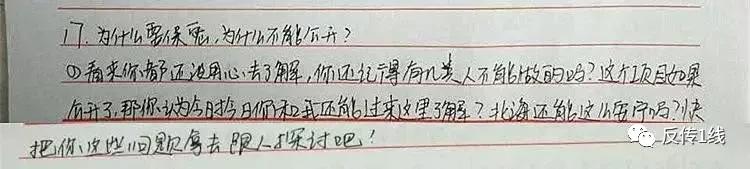 17.为什么要保密,为什么不能公开?
①看来你都还没用心去了解,你还记得有几类人不能做的吗?这个项目如果
公开了,那你认为今时今日你和我还能过来这里了解?北海还能这么安宁吗?快
把你这些问题拿去跟人探讨吧!
反传1线